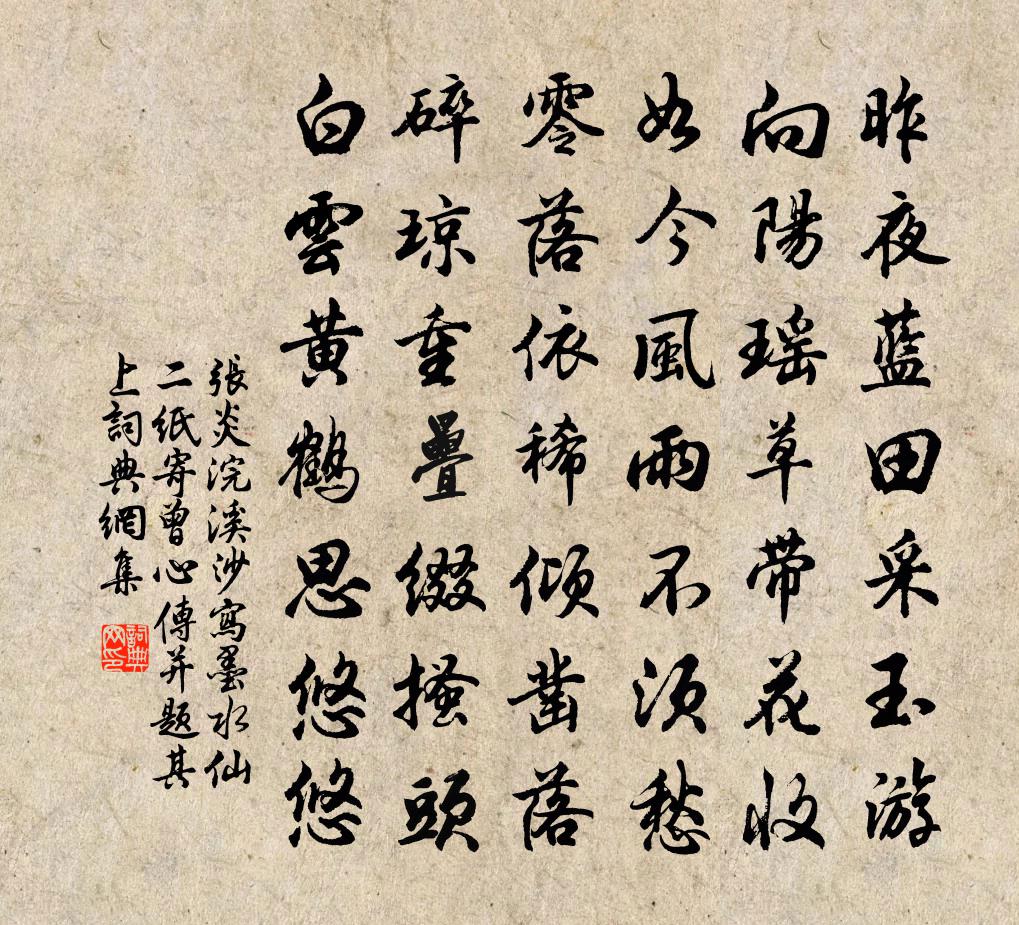 昨夜藍田采玉游
向陽瑶草带花收
如今風雨不須愁
零落依稀傾鑿落
碎琼重疊綴搔頭
白雲黄鶴思悠悠
張炎浣溪沙寫墨水仙
二紙寄曾心傳并題其
上詞典網集
詞典网印